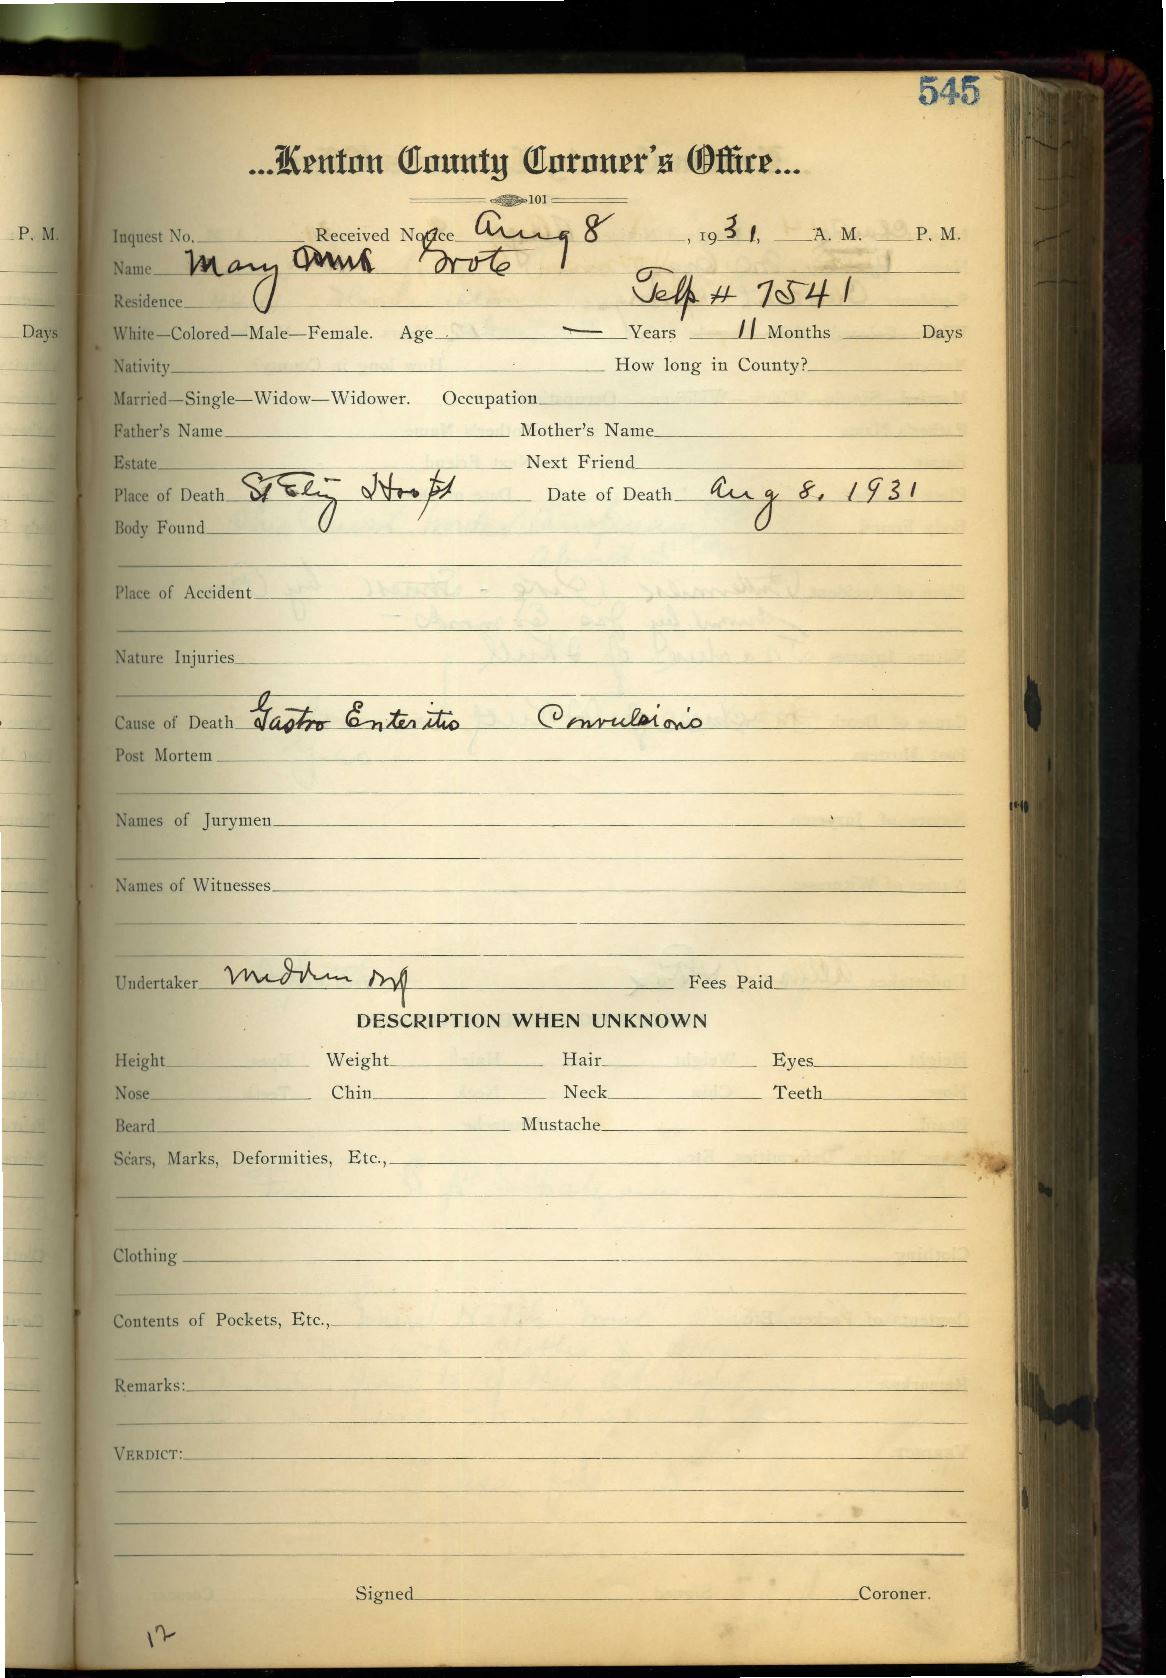 545
...Kenton County Coroner's Office...
101
P. M. Inquest No. Received Notice Aug 8, 1931, A. M. P. M.
Name Mary Ann Grote
Residence Telp # 7541
Days White—Colored—Male—Female. Age — Years 11 Months Days
Nativity How long in County?
Married—Single—Widow—Widower. Occupation
Father's Name Mother's Name
Estate Next Friend
Place of Death St Eliz Hospt Date of Death Aug 8. 1931
Body Found
Place of Accident
Nature Injuries
Cause of Death Gastro Enteritis Convulsions
Post Mortem
Names of Jurymen
Names of Witnesses
Undertaker Fees Paid
DESCRIPTION WHEN UNKNOWN
Height Weight Hair Eyes
Nose Chin Neck Teeth
Beard Mustache
Scars, Marks, Deformities, Etc.,
Clothing
Contents of Pockets, Etc.,
Remarks:
VERDICT:
Signed Coroner.
12